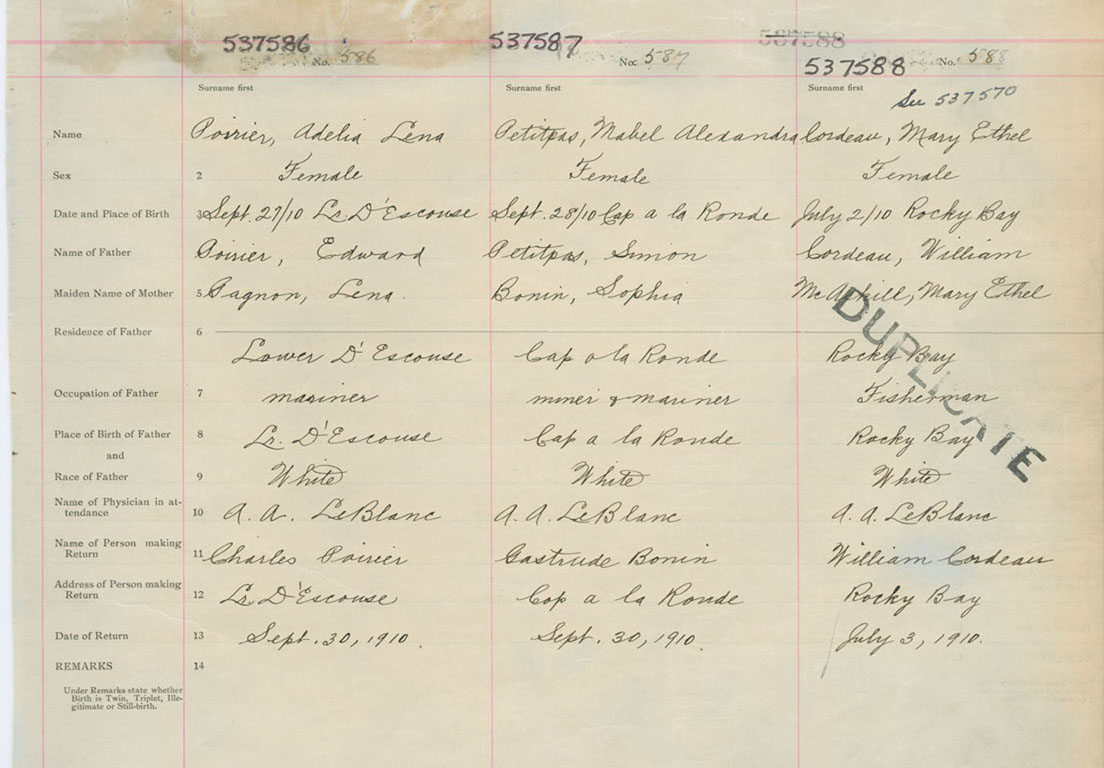 537586 537587 587588
No. 586 No. 587 537588 No. 588
Surname first Surname first Surname first
See 537570
Name Poirier, Adelia Lena Petitpas, Mabel Alexandra Cordeau, Mary Ethel
Sex 2 Female Female Female
Date and Place of Birth 3 Sept. 27/10 Lr. D'Escouse Sept. 28/10 Cap a la Ronde July 2/10 Rocky Bay
Name of Father Poirier, Edward Petitpas, Simon Cordeau, William
Maiden Name of Mother 5 Gagnon, Lena. Bonin, Sophia McAskill, Mary Ethel
DUPLICATE
Residence of Father 6
Lower D'Escouse Cap a la Ronde Rocky Bay
Occupation of Father 7 mariner miner & mariner Fisherman
Place of Birth of Father 8 Lr. D'Escouse Cap a la Ronde Rocky Bay
and
Race of Father 9 White White White
Name of Physician in at-
tendance 10 A. A. LeBlanc A. A. LeBlanc A. A. LeBlanc
Name of Person making
Return 11 Charles Poirier Gastrude Bonin William Cordeau
Address of Person making
Return 12 Lr. D'Escouse Cap a la Ronde Rocky Bay
Date of Return 13 Sept. 30, 1910. Sept. 30, 1910. July 3, 1910.
REMARKS 14
Under Remarks state whether
Birth is Twin, Triplet, Ille-
gitimate or Still-birth.